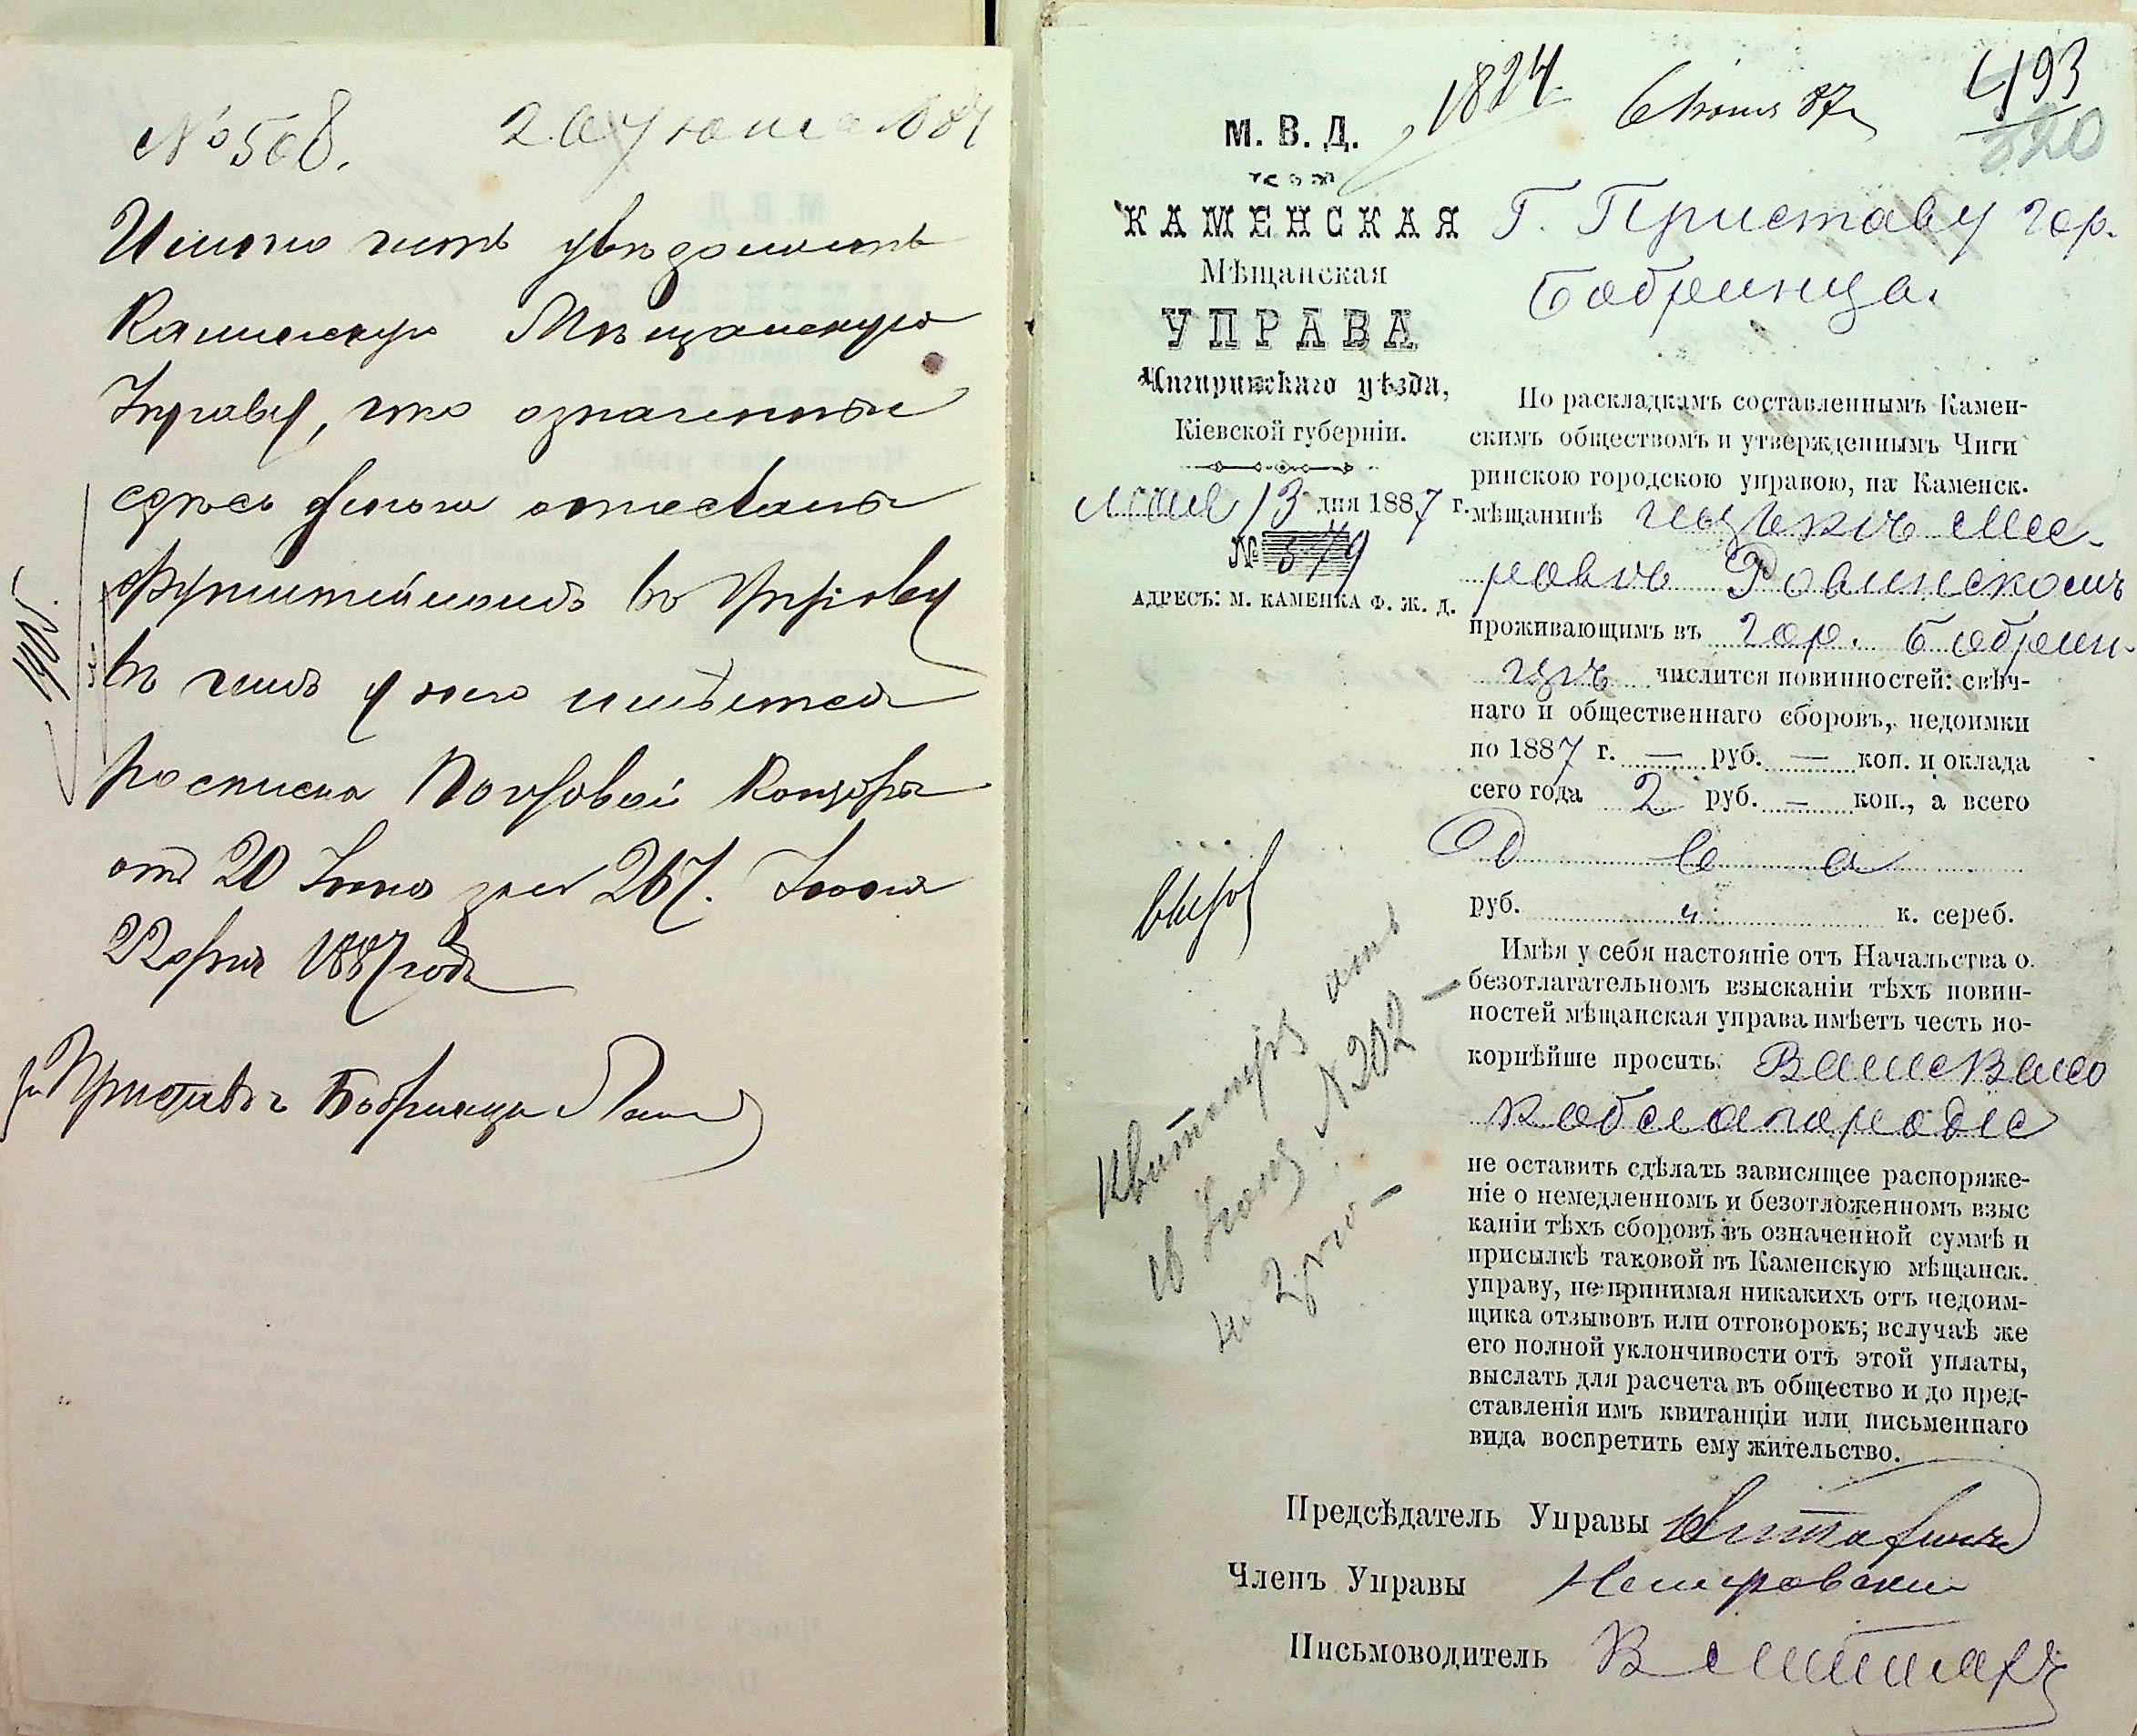 № 508.
Имею честь увѣдомить
Каменскую Мѣщанскую
Управу, что означенные
здѣсь деньги отосланы
въ Управу
въ чемъ у него имѣется
росписка Почтовой Конторы
отъ 20 Іюня за № 267. Іюня
22 дня 1887 года
Приставъ г Бобринца
1824
6 Іюня 87 г
493
520
М. В. Д.
КАМЕНСКАЯ
Мѣщанская
УПРАВА
Чигиринскаго уѣзда,
Кіевской губерніи.
Мая 13 дня 1887 г.
№ 579
АДРЕСЪ: М. КАМЕНКА Ф. Ж. Д.
Г. Приставу гор.
Бобринца.
По раскладкамъ составленнымъ Камен-
скимъ обществомъ и утвержденнымъ Чиги
ринскою городскою управою, на Каменск.
мѣщанинѣ Ицькѣ Мее-
ровѣ Ровинскомъ
проживающимъ въ гор. Бобрин-
цѣ числится повинностей: свѣч-
наго и общественнаго сборовъ, недоимки
по 1887 г. — руб. — коп. и оклада
сего года 2 руб. — коп., а всего
Два
руб. " к. сереб.
Имѣя у себя настояніе отъ Начальства о
безотлагательномъ взысканіи тѣхъ повин-
ностей мѣщанская управа имѣетъ честь по-
корнѣйше просить: Ваше Высо
коблагородіе
не оставить сдѣлать зависящее распоряже-
ніе о немедленномъ и безотложенномъ взыс
каніи тѣхъ сборовъ въ означенной суммѣ и
присылкѣ таковой въ Каменскую мѣщанск.
управу, не принимая никакихъ отъ недоим-
щика отзывовъ или отговорокъ; вслучаѣ же
его полной уклончивости отъ этой уплаты,
выслать для расчета въ общество и до пред-
ставленія имъ квитанціи или письменнаго
вида воспретить ему жительство.
Квитанція отъ
№ 202 —
на 2 р
Предсѣдатель Управы
Членъ Управы Немировскій
Письмоводитель